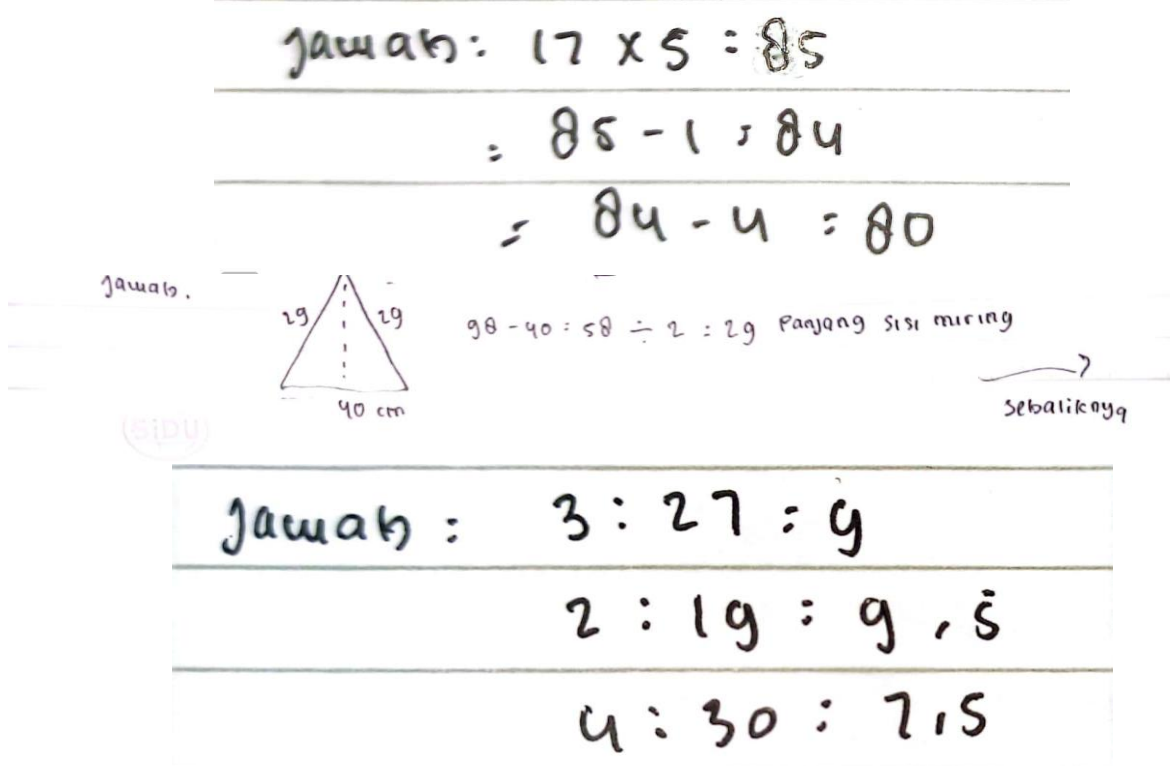 Jawab: 17 x 5 = 85
= 85 - 1 = 84
= 84 - 4 = 80
Jawab.
29 29 98 - 40 = 58 ÷ 2 = 29 Panjang sisi miring
40 cm
sebaliknya
SiDU
Jawab : 3 : 27 = 9
2 : 19 = 9,5
4 : 30 = 7,5